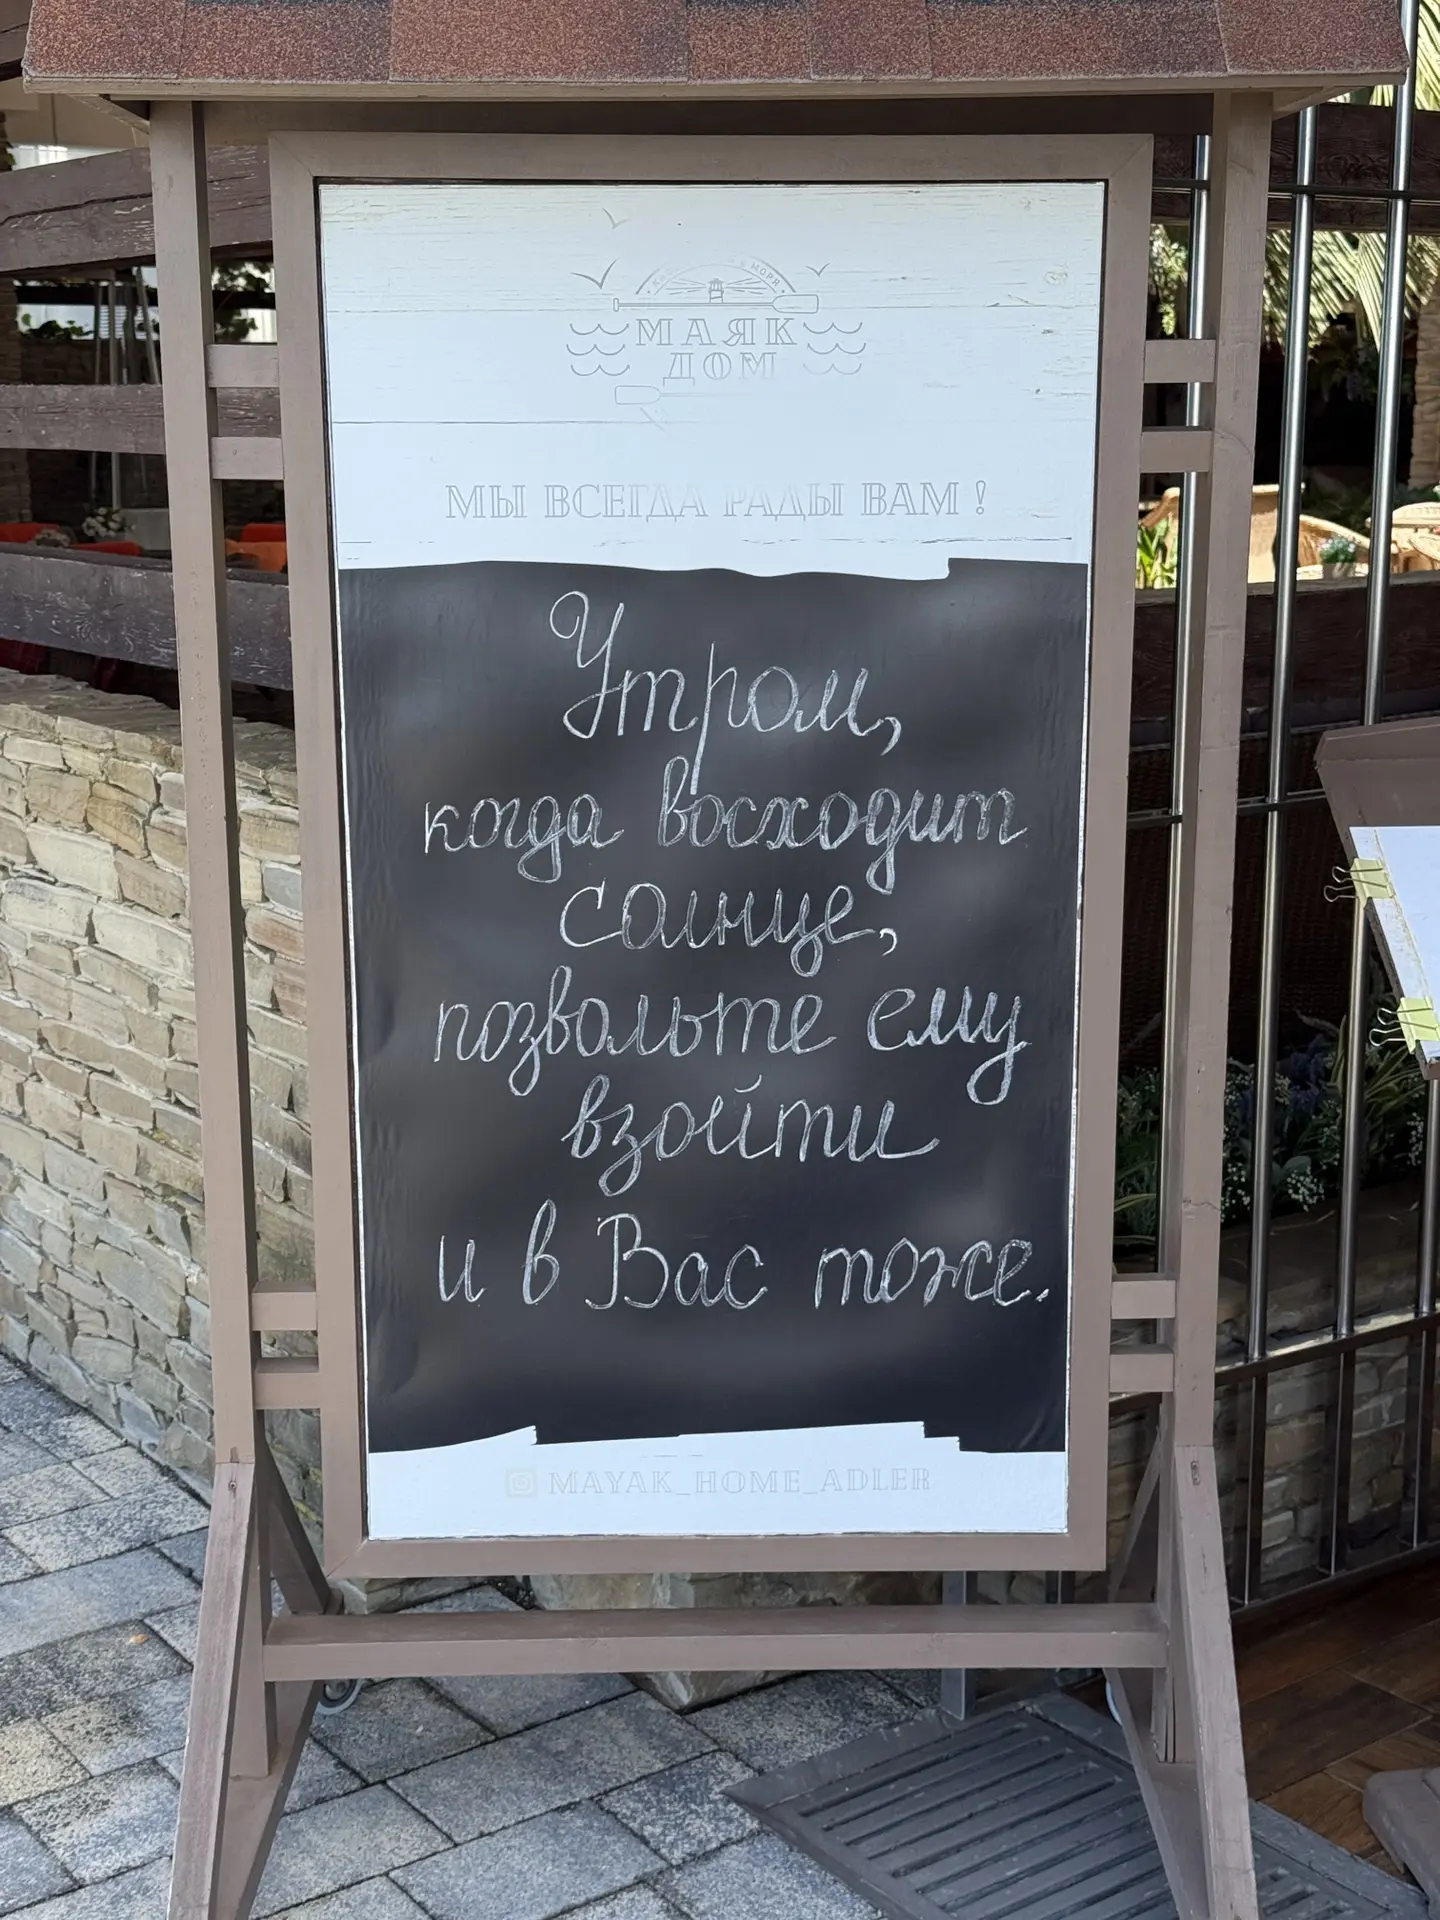 МОРЯ
МАЯК
ДОМ
МЫ ВСЕГДА РАДЫ ВАМ!
Утром,
когда восходит
солнце,
позвольте ему
взойти
и в Вас тоже.
MAYAK_HOME_ADLER